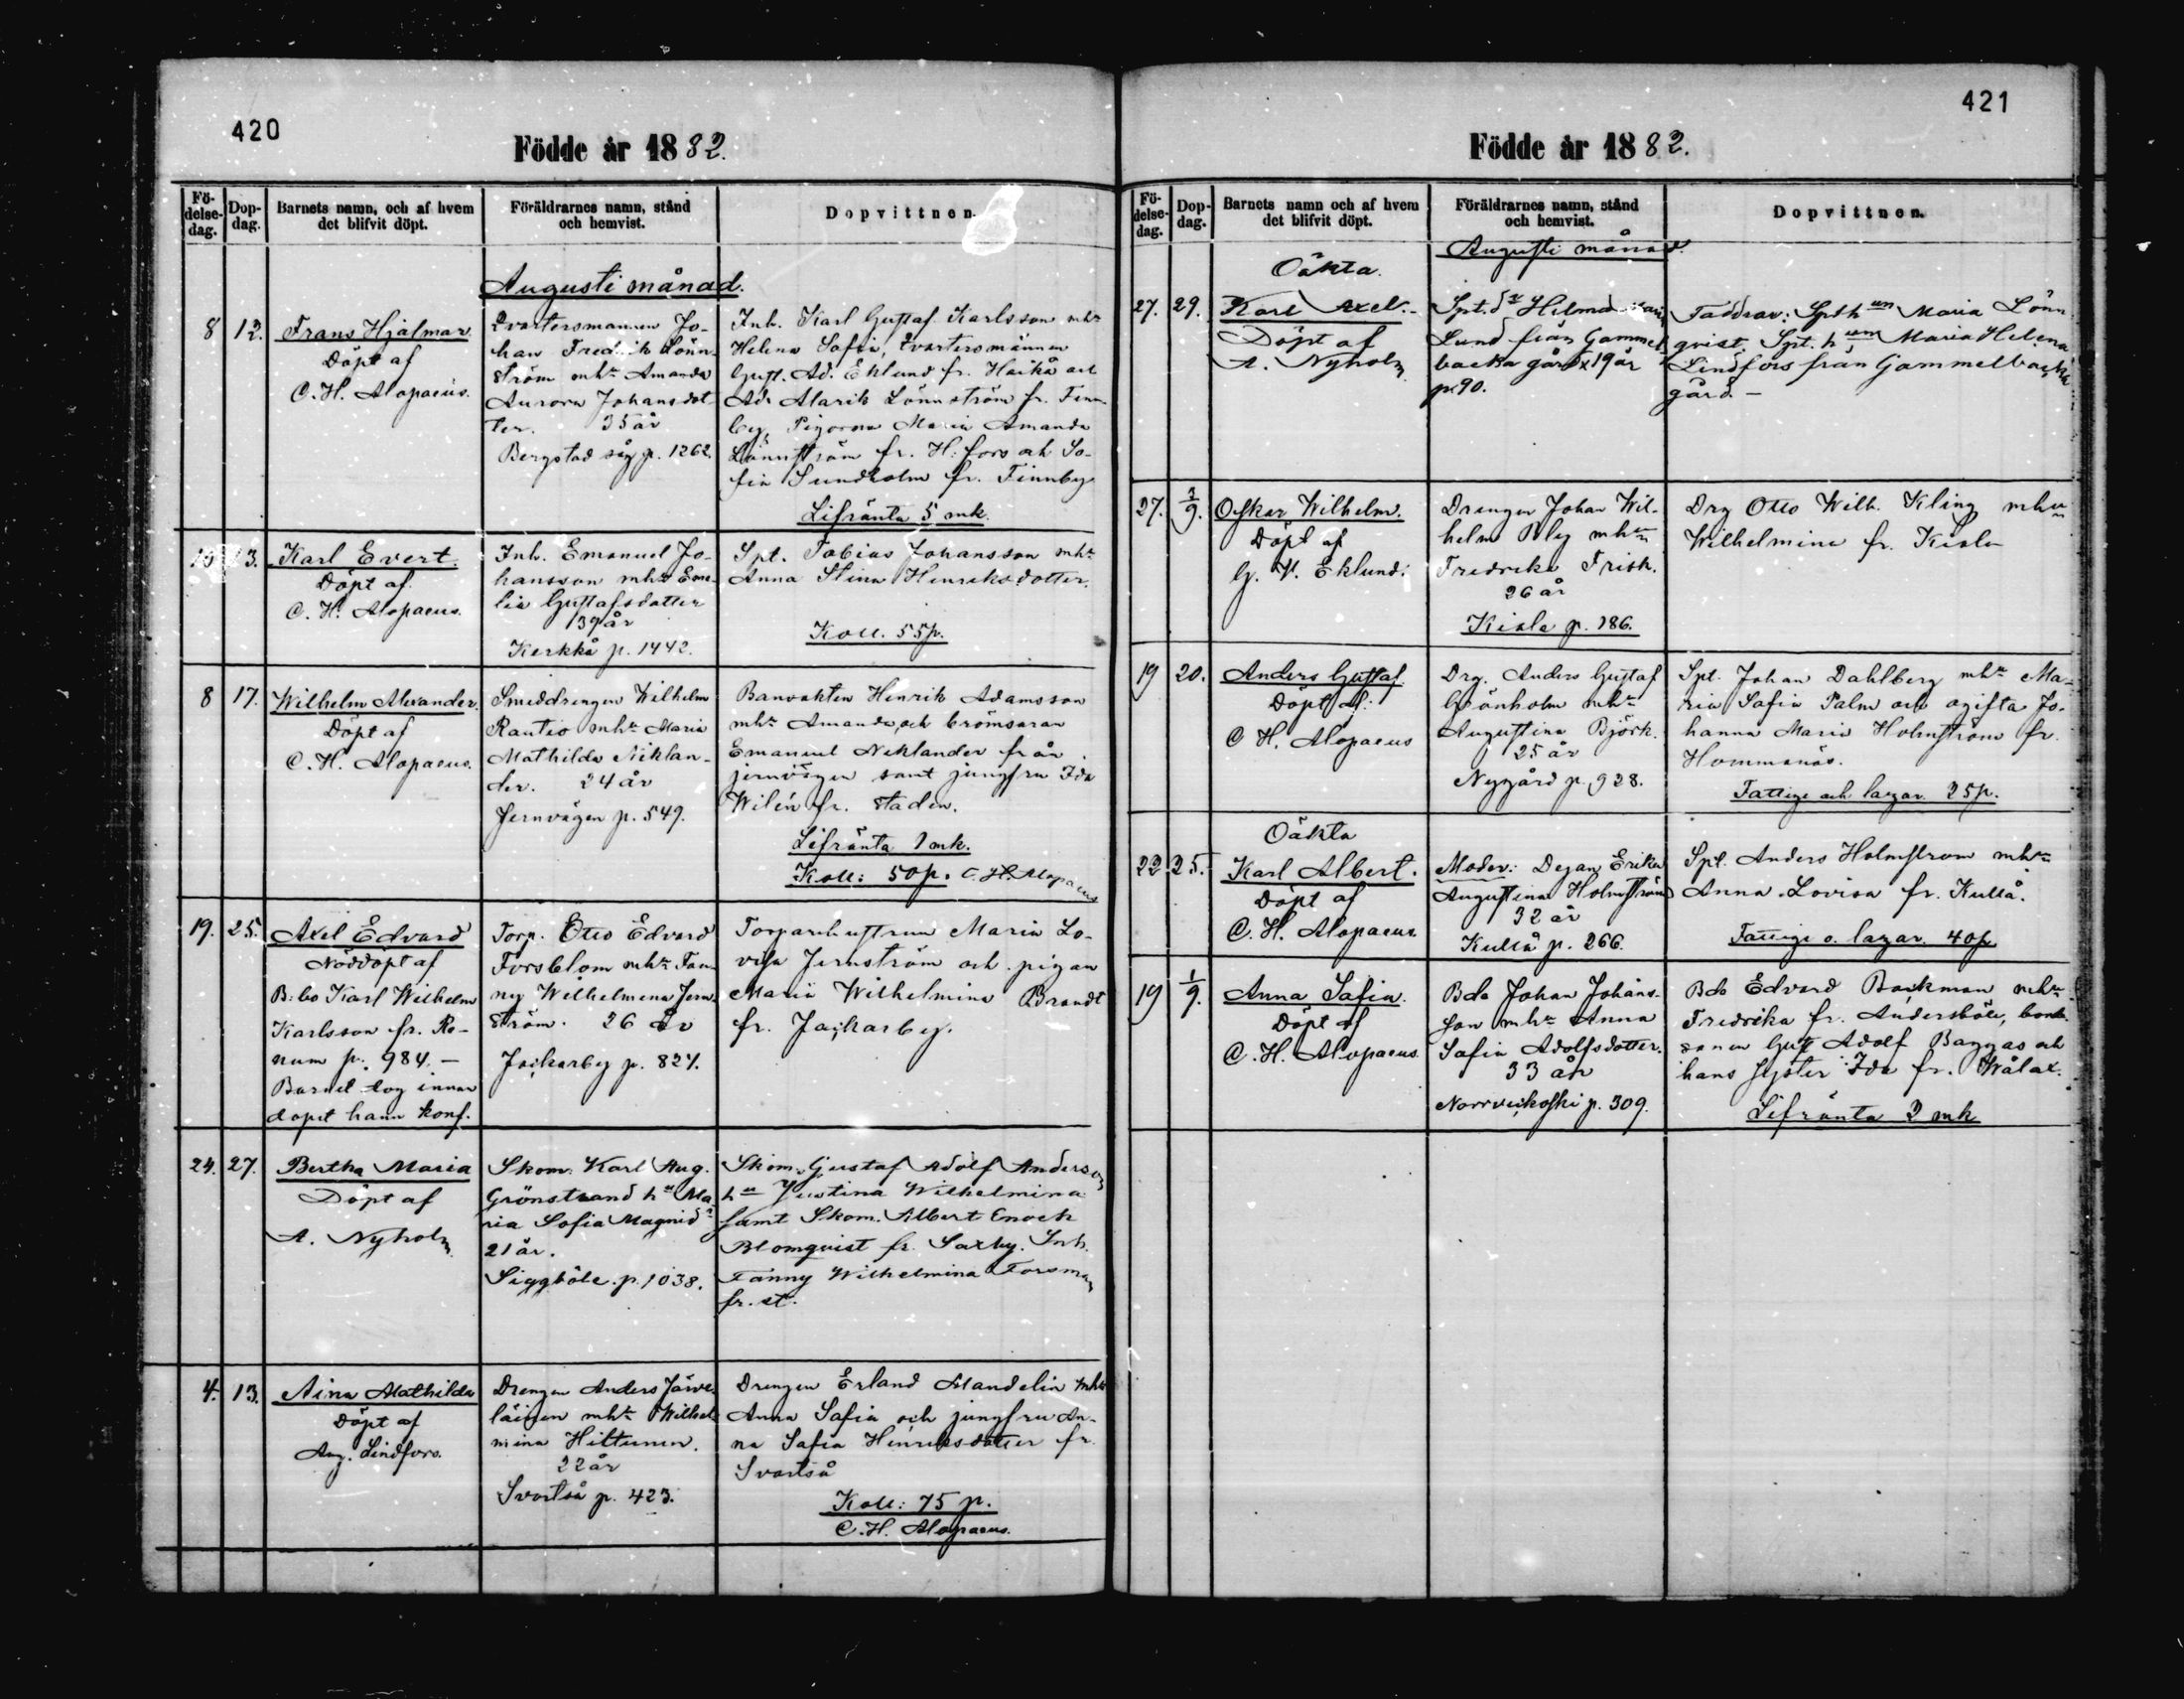 420
Födde år 1882.
Fö-
delse-
dag.
Dop-
dag.
Barnets namn, och af hvem
det blifvit döpt.
Föräldrarnes namn, stånd
och hemvist.
Dopvittnen.
Augusti månad.
8
12.
Frans Hjalmar
Döpt af
C. H. Alopaeus.
Qvartersmannen Jo-
han Fredrik Lönn-
ström mhu Amanda
Aurora Johansdot-
ter. 35 år
Bergstad såg p. 1262.
Inh. Karl Gustaf Karlsson mhu
Helena Sofia, Qvartersmännen
Gust. Ad. Eklund fr. Haikå och
Ad. Alarik Lönnström fr. Finn-
by, Pigorna Maria Amanda
Lönnström fr. H:fors och So-
fia Sundholm fr. Finnby
Lifränta 5 mk.
13.
Karl Evert.
Döpt af
C. H. Alopaeus.
Inh. Emanuel Jo-
hansson mhu Eme-
lia Gustafsdotter
39 år
Kerkkå p. 1442.
Spt. Tobias Johansson mhu
Anna Stina Henriksdotter.
Koll. 55 p.
8
17.
Wilhelm Alexander.
Döpt af
C. H. Alopaeus.
Smeddrengen Wilhelm
Rautio mhu Maria
Mathilda Niklan-
der. 24 år
Jernvägen p. 549.
Banvakten Henrik Adamsson
mhu Amanda, och bromsaren
Emanuel Niklander från
jernvägen samt jungfru Ida
Wilén fr. staden.
Lifränta 1 mk.
Koll: 50 p. C. H. Alopaeus
19.
25.
Axel Edvard
Nöddöpt af
B:bo Karl Wilhelm
Karlsson fr. Ro-
num p. 984. —
Barnet dog innan
dopet hann konf.
Torp. Otto Edvard
Forsblom mhu Fan-
ny Wilhelmina Jern-
ström. 26 år
Jackarby p. 827.
Torparehustrun Maria Lo-
visa Jernström och pigan
Maria Wilhelmina Brandt
fr. Jackarby.
24.
27.
Bertha Maria
Döpt af
A. Nyholm
Skom. Karl Aug.
Grönstrand hu Ma-
ria Sofia Magnidr
21 år.
Siggböle p. 1038.
Skom. Gustaf Adolf Anderson
hu Justina Wilhelmina
samt Skom. Albert Enoch
Blomqvist fr. Saxby. Inh.
Fanny Wilhelmina Forsman
fr. st.
4.
13.
Aina Mathilda
Döpt af
Aug. Lindfors.
Drengen Anders Järve-
läinen mhu Wilhel-
mina Hiltunen.
22 år
Svartså p. 423.
Drengen Erland Mandelin mhu
Anna Sofia och jungfru An-
na Sofia Henriksdotter fr.
Svartså
Koll: 75 p.
C. H. Alopaeus.
421
Födde år 1882.
Fö-
delse-
dag.
Dop-
dag.
Barnets namn och af hvem
det blifvit döpt.
Föräldrarnes namn, stånd
och hemvist.
Dopvittnen.
Augusti månad.
Oäkta.
27.
29.
Karl Axel.-
Döpt af
A. Nyholm
Spt.dr Hilma
Lund från Gammel-
backa gård 19 år
p. 90.
Faddrar: Spthun Maria Lönn-
qvist, Spt.hun Maria Helena
Lindfors från Gammelbacka
gård. —
27.
3/9.
Oskar Wilhelm.
Döpt af
G. V. Eklund.
Drengen Johan Wil-
helm Bly mhu
Fredrika Frisk.
26 år
Kiala p. 186.
Drg Otto Wilh. Kling mhu
Wilhelmina fr. Kiala
19
20.
Anders Gustaf
Döpt af
C. H. Alopaeus
Drg. Anders Gustaf
Grönholm mhu
Augustina Björk.
25 år
Nygård p. 928.
Spt. Johan Dahlberg mhu Ma-
ria Sofia Palm och ogifta Jo-
hanna Maria Holmström fr.
Hommanäs.
Fattige och lazar. 25 p.
Oäkta
22.
25.
Karl Albert.
Döpt af
C. H. Alopaeus
Moder: Dejan Erika
Augustina Holmström
32 år
Kullå p. 266.
Spt. Anders Holmström mhu
Anna Lovisa fr. Kullå.
Fattige o. lazar. 40 p.
19
1/9.
Anna Sofia.
Döpt af
C. H. Alopaeus.
Bde Johan Johans-
son mhu Anna
Sofia Adolfsdotter.
33 år
Norrveckoski p. 309.
Bde Edvard Backman mhu
Fredrika fr. Andersböle, bonde-
sonen Gust Adolf Baggas och
hans syster Ida fr. Wålax.
Lifränta 2 mk